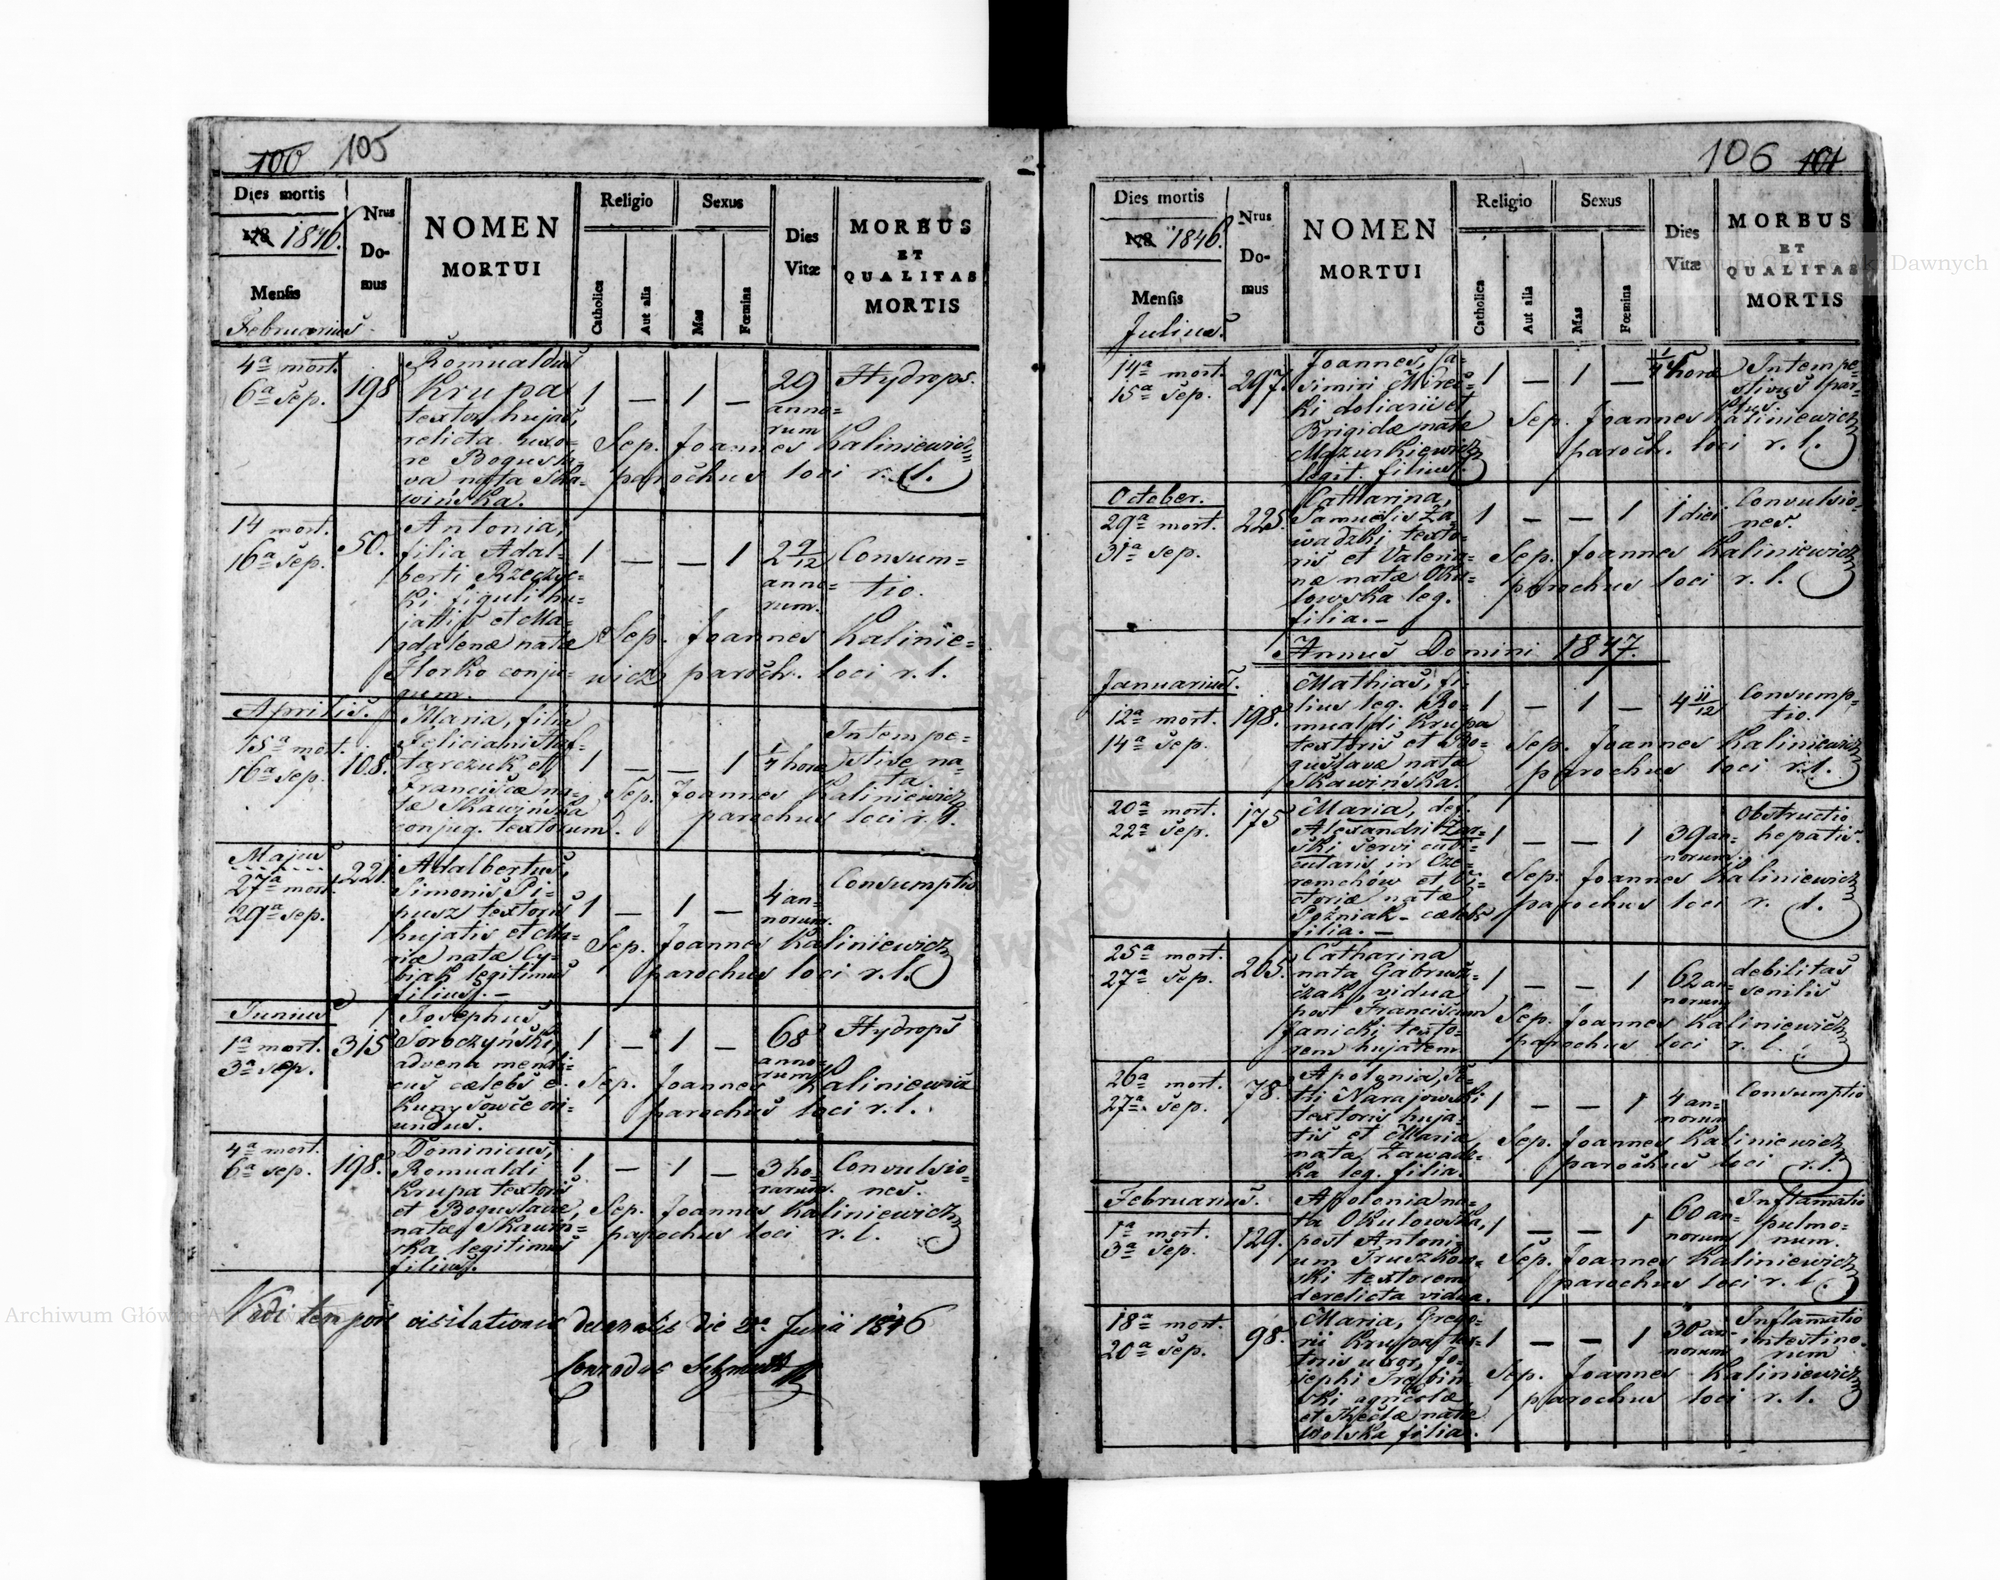 100 105
Dies mortis
178 1846.
Mensis
Februarius.
Nrus
Do-
mus
NOMEN
MORTUI
Religio
Catholica
Aut alia
Sexus
Mas
Fœmina
Dies
Vitæ
MORBUS
ET
QUALITAS
MORTIS
4a mort.
6a sep.
198
Romualdus
Krupa
textor hujas,
relicta uxo-
re Bogusła-
va nata Ska-
wińska.
1 — 1 —
29
anno-
rum
Hydrops.
Sep. Joannes Kaliniewicz
parochus loci r. l.
14 mort.
16a sep.
50.
Antonia,
filia Adal-
berti Rzeczyc-
ki figuli hu-
jatis et Ma-
gdalenæ natæ
Horko conju-
gum.
1 — — 1
2 9/12
anno-
rum.
Consum-
tio.
Sep. Joannes Kalinie-
wicz paroch. loci r. l.
Aprilis.
15a mort.
16a sep.
108.
Maria, filia
Feliciani
et
Franciscæ na-
tæ Skawinska
conjug. textorum.
1 — — 1
1/4 horæ
Intempe-
stive na-
ta
Sep. Joannes Kaliniewicz
parochus loci r. l.
Majus
27a mort.
29a sep.
221
Adalbertus,
Simonis Pi-
pusz textoris
hujatis et Ma-
riæ natæ Cy-
biak legitimus
filius. —
1 — 1 —
4 an-
norum.
Consumptio
Sep. Joannes Kaliniewicz
parochus loci r. l.
Junius
1a mort.
3a sep.
315
Josephus
Soroczyński,
advena mendi-
cus cælebs e
Kunysowce ori-
undus.
1 — 1 —
68
anno-
rum
Hydrops
Sep. Joannes Kaliniewicz
parochus loci r. l.
4a mort.
6a sep.
198.
Dominicus,
Romualdi
Krupa textoris
et Boguslavæ,
natæ Skawin-
ska legitimus
filius.
1 — 1 —
3 ho-
rarum.
Convulsio-
nes.
Sep. Joannes Kaliniewicz
parochus loci r. l.
Vidi visitationis decanalis die 2a Junii 1846
106 101
Dies mortis
178 1846.
Mensis
Julius.
Nrus
Do-
mus
NOMEN
MORTUI
Religio
Catholica
Aut alia
Sexus
Mas
Fœmina
Dies
Vitæ
MORBUS
ET
QUALITAS
MORTIS
14a mort.
15a sep.
297.
Joannes, Ca-
simiri Mirec-
ki doliarii et
Brigidæ natæ
Mazurkiewicz
legit. filius.
1 — 1 —
1/4 horæ
Intempe-
stivus par-
tus.
Sep. Joannes Kaliniewicz
paroch. loci r. l.
October.
29a mort.
31a sep.
225.
Catharina,
Samuelis Za-
wadzki texto-
ris et Valeria-
næ natæ Oku-
lowska leg.
filia. —
1 — — 1
1 diei
Convulsio-
nes.
Sep. Joannes Kaliniewicz
parochus loci r. l.
Annus Domini 1847.
Januarius.
12a mort.
14a sep.
198.
Mathias, fi-
lius leg. Ro-
mualdi Krupa
textoris et Bo-
guslavæ natæ
Skawińska.
1 — 1 —
4 11/12
Consump-
tio.
Sep. Joannes Kaliniewicz
parochus loci r. l.
20a mort.
22a sep.
175
Maria, def.
Alexandri
servi cubi-
cularis in Cze-
remchów et Vi-
ctoriæ natæ
Poźniak - cælebs
filia. —
1 — — 1
39 an-
norum.
Obstructio
hepatis.
Sep. Joannes Kaliniewicz
parochus loci r. l.
25a mort.
27a sep.
265.
Catharina
nata Gabrusz-
czak, vidua
post Franciscum
Janicki texto-
rem hujatem
1 — — 1
62 an-
norum
debilitas
senilis
Sep. Joannes Kaliniewicz
parochus loci r. l.
26a mort.
27a sep.
78.
Apolonia, Pe-
tri Narajowski
textoris huja-
tis et Maria
nata Zawadz-
ka leg. filia.
1 — — 1
4 an-
norum
Consumptio
Sep. Joannes Kaliniewicz
parochus loci r. l.
Februarius.
1a mort.
3a sep.
129.
Apolonia na-
ta Okulowska,
post Antoni-
um Truszkow-
ski textorem
derelicta vidua.
1 — — 1
60 an-
norum
Inflamatio
pulmo-
num.
Sep. Joannes Kaliniewicz
parochus loci r. l.
18a mort.
20a sep.
98.
Maria, Grego-
rii Krupa tex-
toris uxor, Jo-
sephi
ski agricolæ
et Theclæ natæ
Wolska filia.
1 — — 1
30 an-
norum
Inflamatio
intestino-
rum
Sep. Joannes Kaliniewicz
parochus loci r. l.
Archiwum Główne Akt Dawnych
Archiwum Główne Akt Dawnych